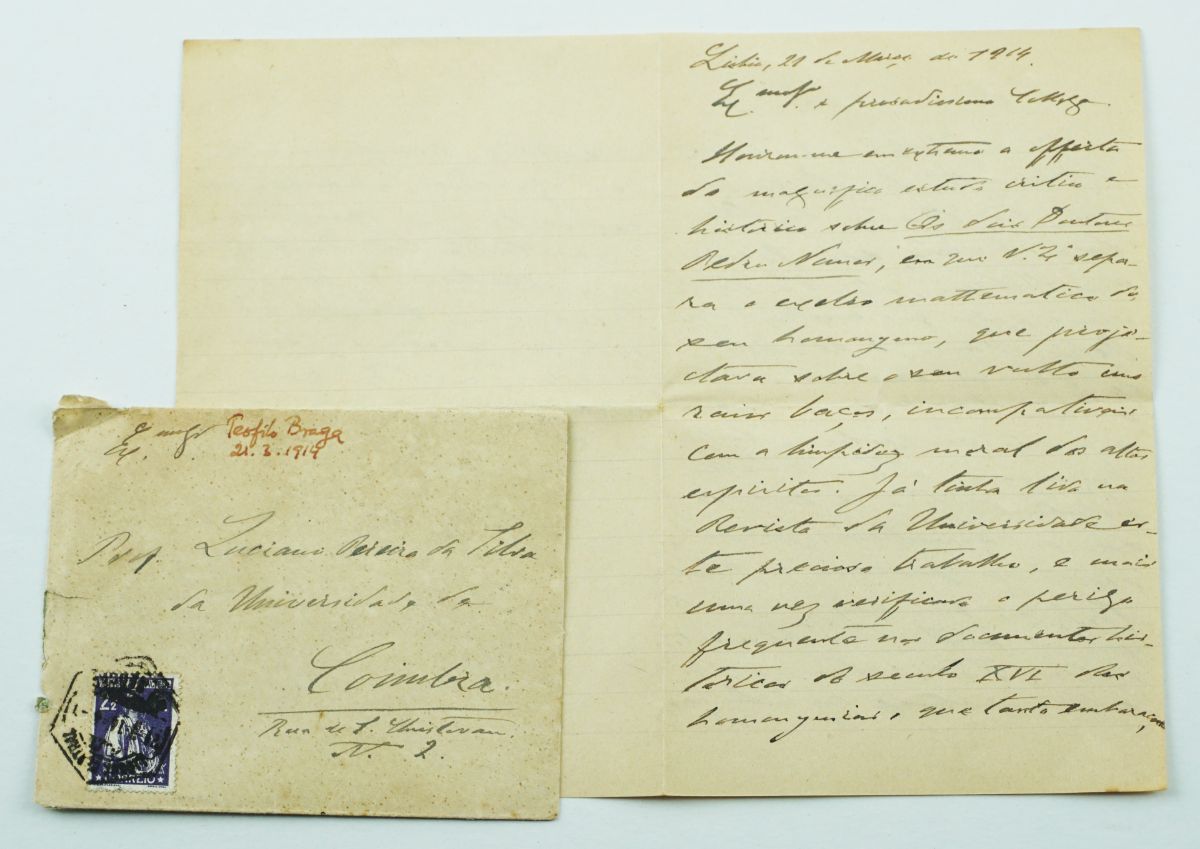 Lisboa, 21 de Março de 1914.
Ex.mo Sr. e presadissimo Collega
Honrou-me em extremo a offerta
do magnifico estudo critico e
historico sobre Os dois Doutores
Pedro Nunes, em que V. Ex.ª sepa-
ra o excelso mathematico do
seu homonymo, que proje-
ctava sobre o seu vulto uns
raios baços, incompativeis
com a limpidez moral dos altos
espiritos. Já tinha lido na
Revista da Universidade es-
te precioso trabalho, e mais
uma vez verificado o perigo
frequente nos documentos his-
toricos do seculo XVI das
homonymias, que tanto embaraçam,
Ex.mo Sr.
Teofilo Braga
21.3.1914
Prof. Luciano Pereira da Silva
da Universidade de
Coimbra.
Rua de S. Christovam
N. 2.
2½
CORREIO